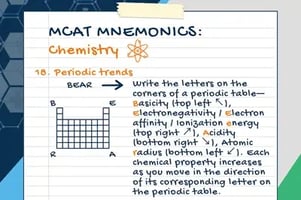 MCAT MNEMONICS:
Chemistry
18. Periodic trends
BEAR → Write the letters on the
corners of a periodic table—
Basicity (top left ↖),
Electronegativity / Electron
affinity / Ionization energy
(top right ↗), Acidity
(bottom right ↘), Atomic
radius (bottom left ↙). Each
chemical property increases
as you move in the direction
of its corresponding letter on
the periodic table.
B E
R A